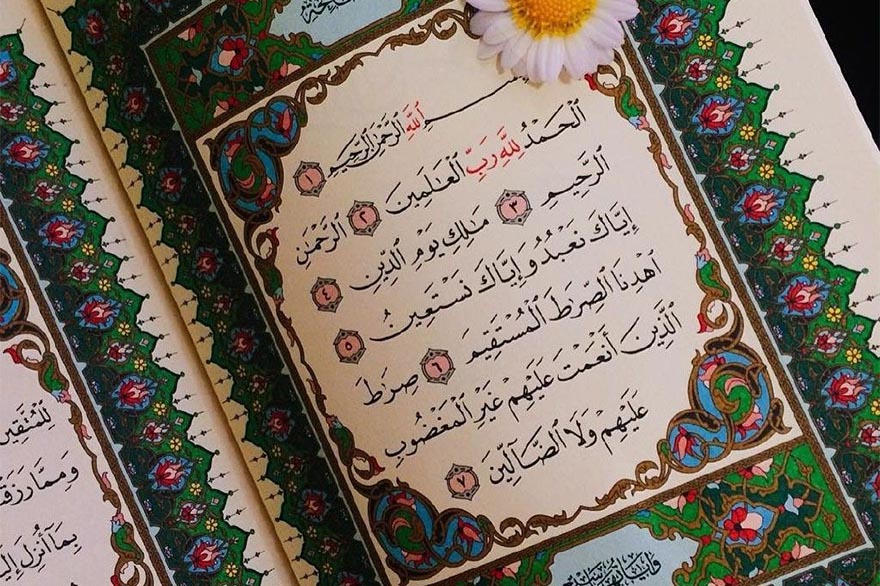 ٱللَّهِ ٱلرَّحْمَٰنِ ٱلرَّحِيمِ ١
ٱلْحَمْدُ لِلَّهِ رَبِّ ٱلْعَٰلَمِينَ ٢ ٱلرَّحْمَٰنِ
ٱلرَّحِيمِ ٣ مَٰلِكِ يَوْمِ ٱلدِّينِ ٤
إِيَّاكَ نَعْبُدُ وَإِيَّاكَ نَسْتَعِينُ ٥
ٱهْدِنَا ٱلصِّرَٰطَ ٱلْمُسْتَقِيمَ ٦ صِرَٰطَ
ٱلَّذِينَ أَنْعَمْتَ عَلَيْهِمْ غَيْرِ ٱلْمَغْضُوبِ
عَلَيْهِمْ وَلَا ٱلضَّآلِّينَ ٧
لِلْمُتَّقِينَ
وَمِمَّا
بِمَآ أُنزِلَ